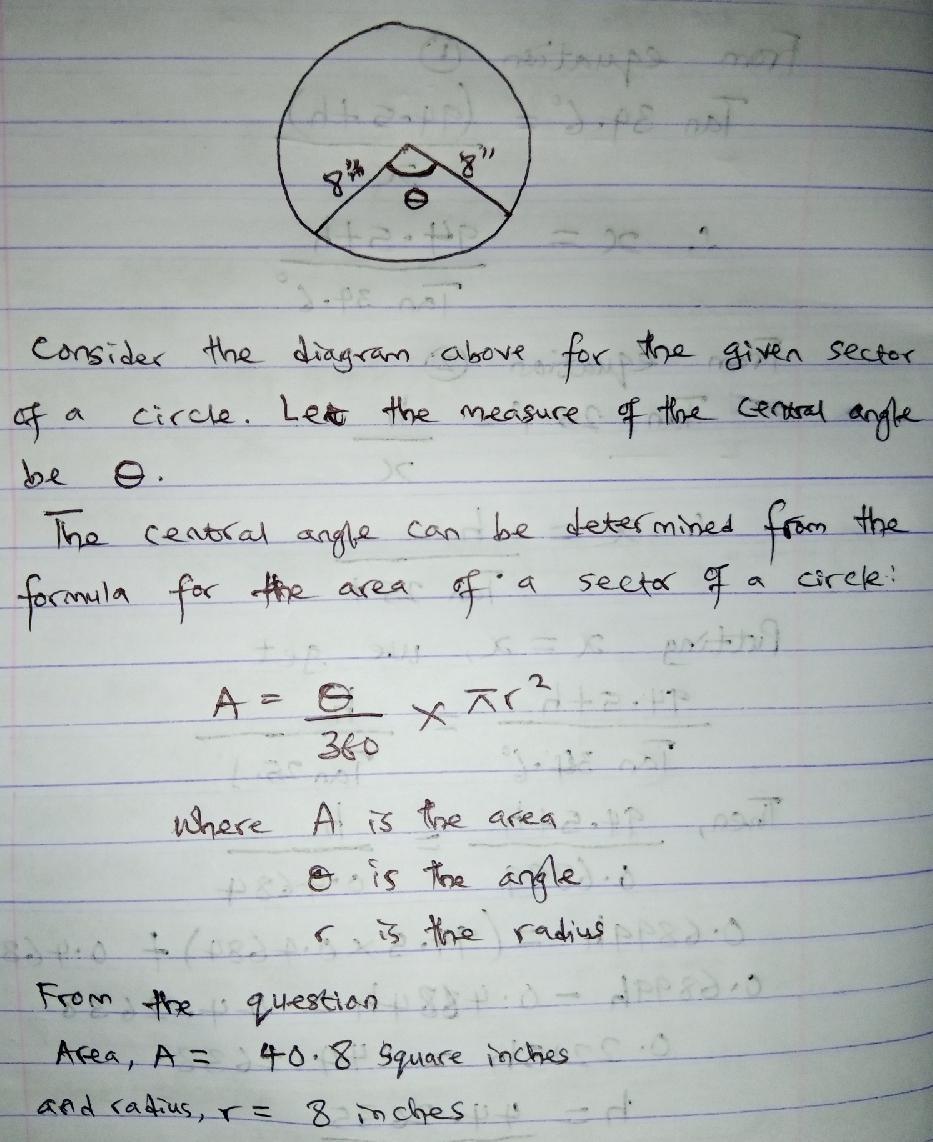 8"
8"
θ
Consider the diagram above for the given sector
of a circle. Let the measure of the central angle
be θ.
The central angle can be determined from the
formula for the area of a sector of a circle:
A = θ/360 × πr²
Where A is the area
θ is the angle
r is the radius
From the question
Area, A = 40.8 Square inches
and radius, r = 8 inches